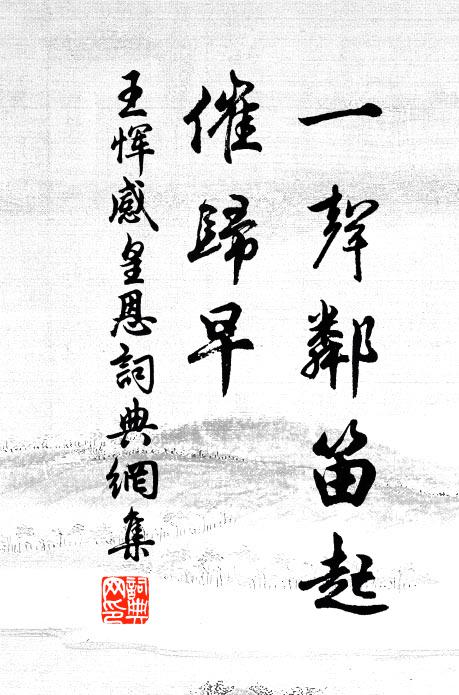 一聲鄰笛起
催歸早
王惲感皇恩詞典網集
詞典网印